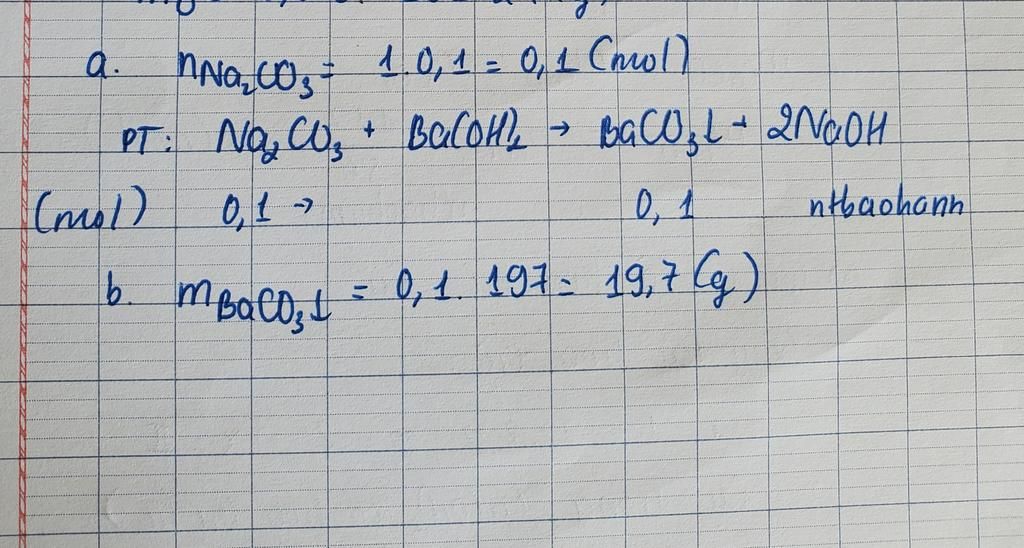 a. nNa₂CO₃ = 1.0,1 = 0,1 (mol)
PT: Na₂CO₃ + Ba(OH)₂ → BaCO₃↓ + 2NaOH
(mol) 0,1 → 0,1 ntbaohann
b. mBaCO₃↓ = 0,1. 197 = 19,7 (g)